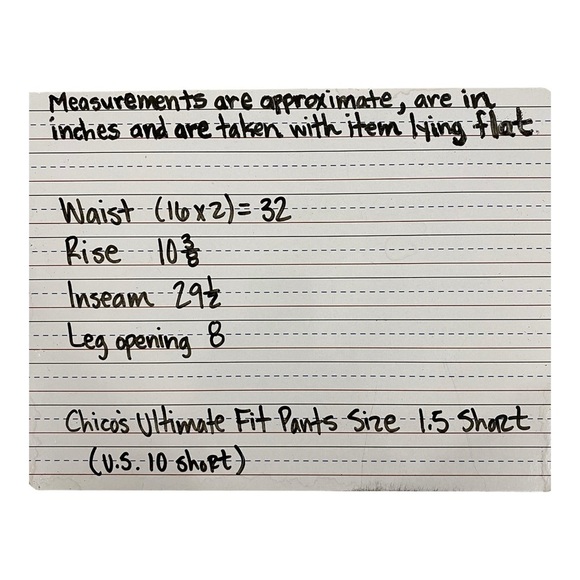 Measurements are approximate, are in
inches and are taken with item lying flat
Waist (16x2)= 32
Rise 10 3/8
Inseam 29 1/2
Leg opening 8
Chico's Ultimate Fit Pants Size 1.5 Short
(U.S. 10 short)